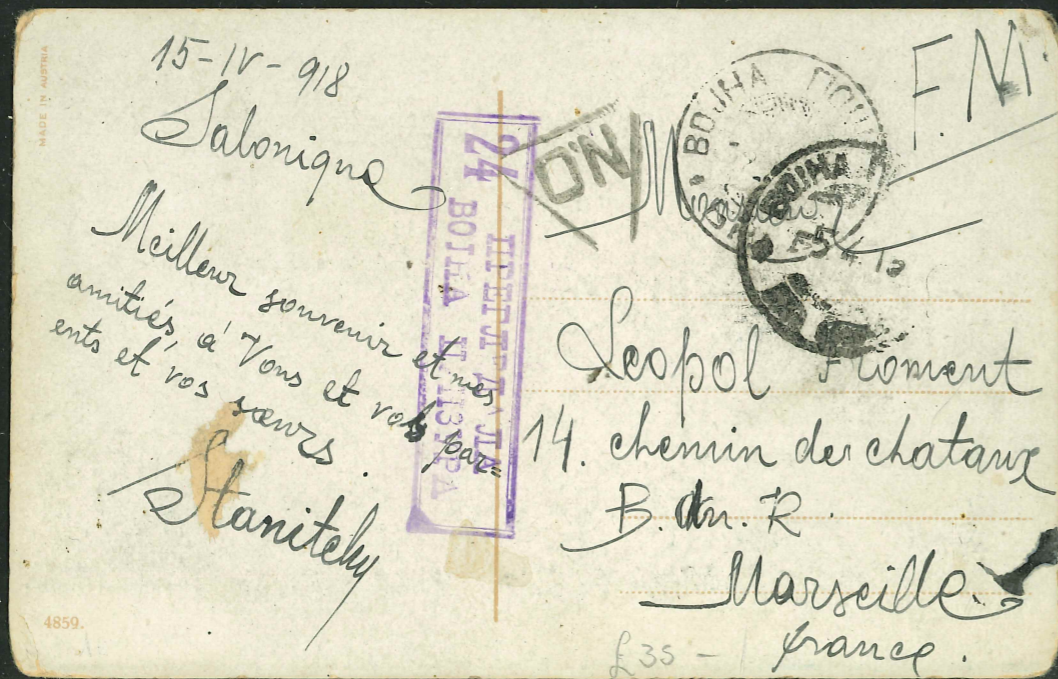 MADE IN AUSTRIA
15-IV-918
Salonique
Meilleur souvenir et mes
amitiés, à Vous et vos par=
ents et vos sœurs.
Stanitchy
4859.
24
ВОЈНА
D.N
ВОЈНА ПОШ
ВОЈНА
F.M.
M
Leopol Froment
14. chemin des chataux
B. du. R.
Marseille.
france.
£35-